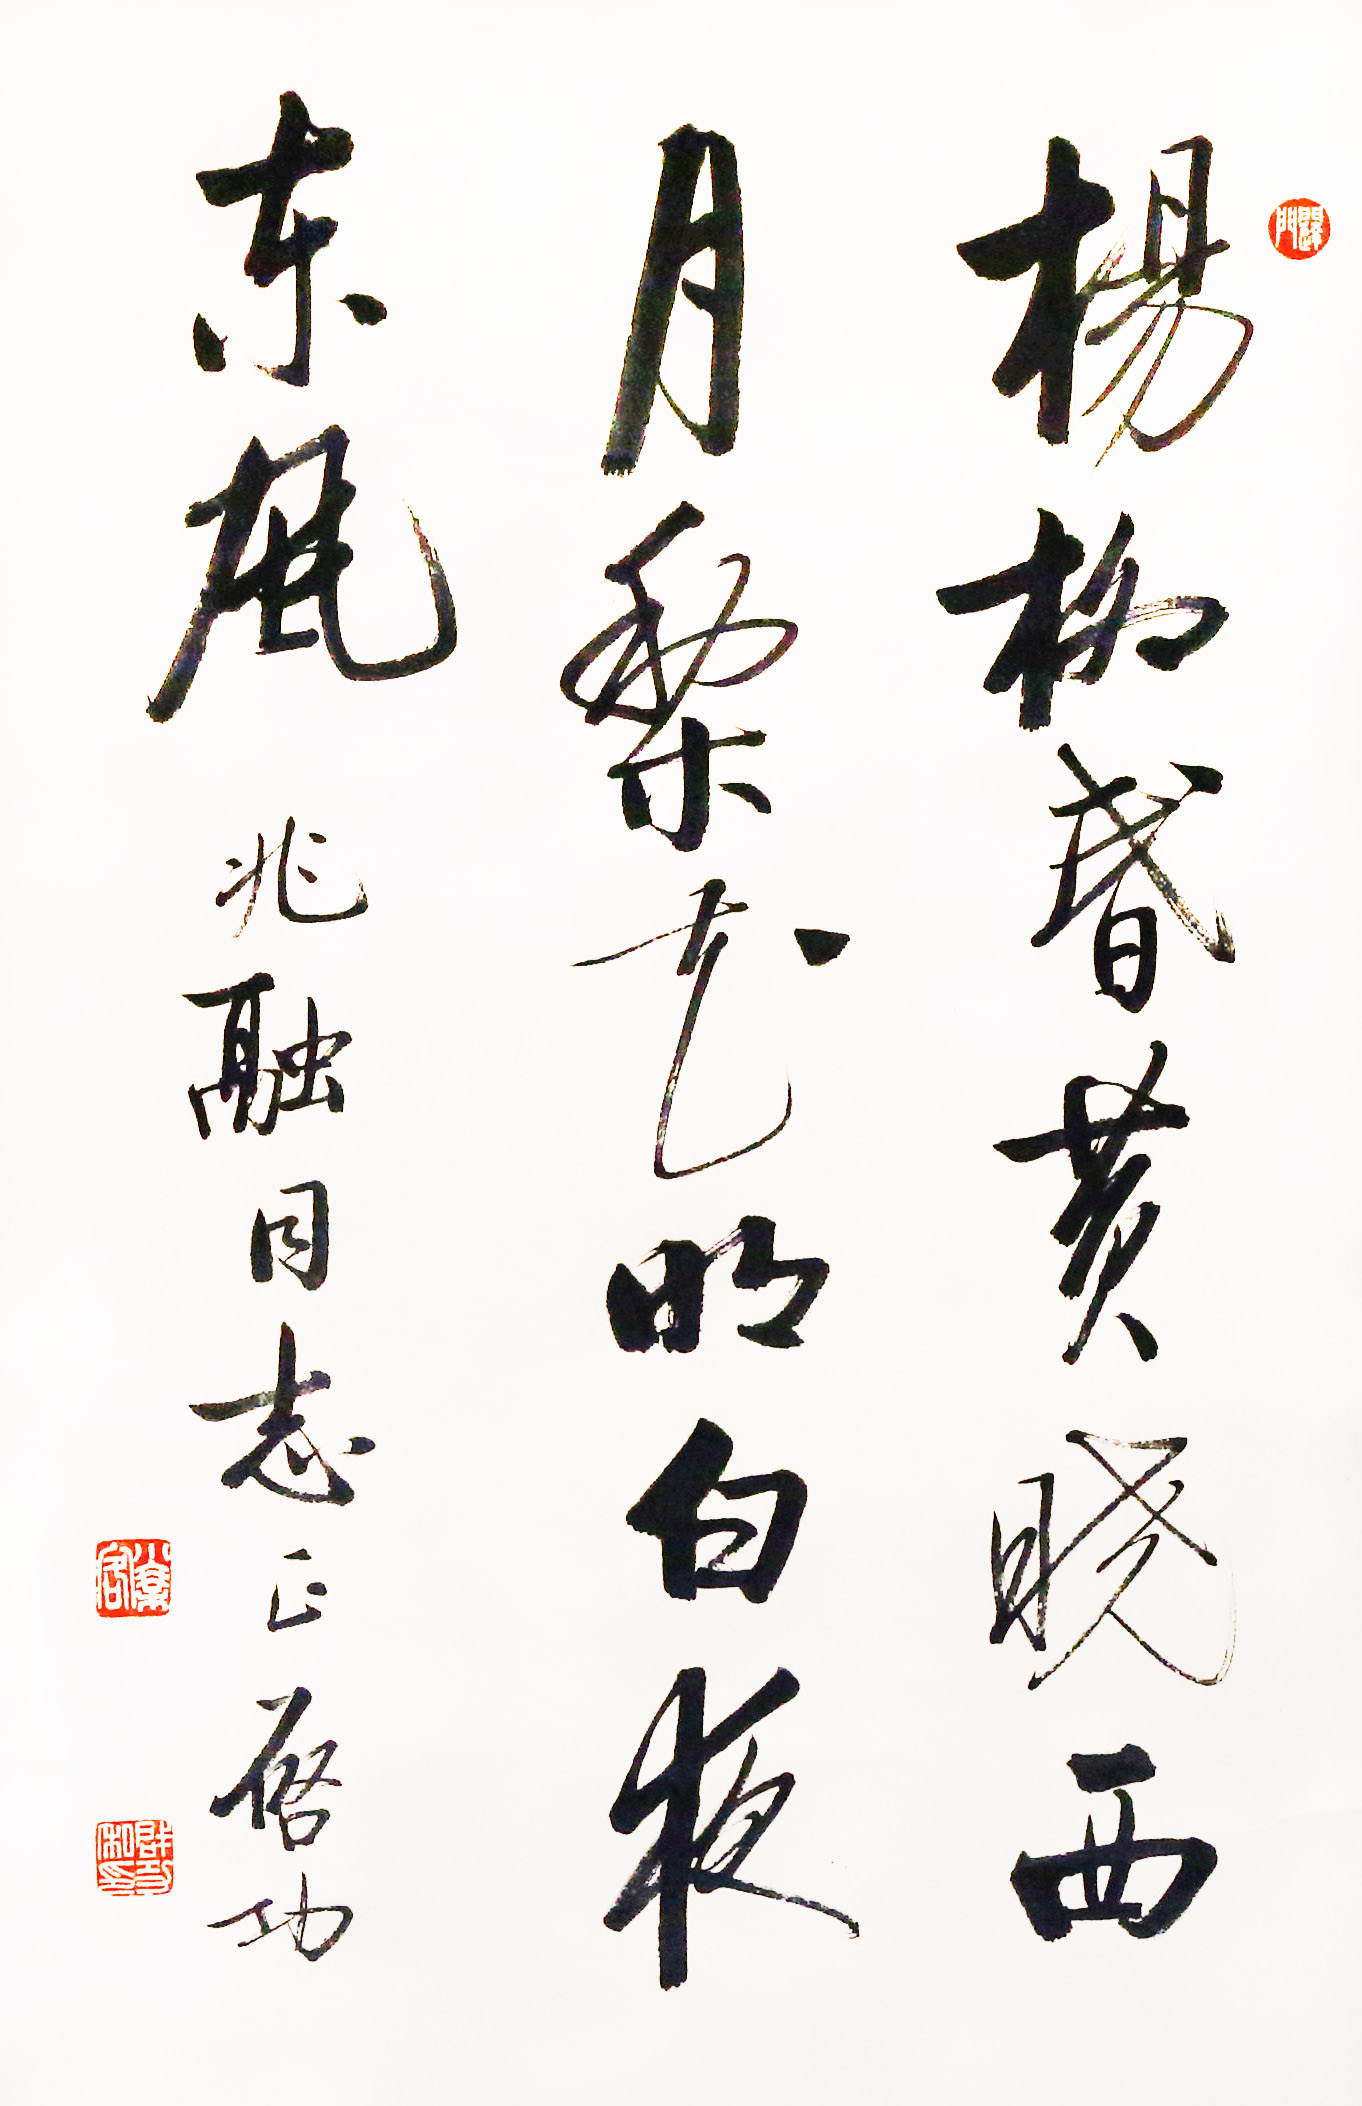 楊柳昏黄曉西
月梨花明白夜
东風 兆融同志正 启功